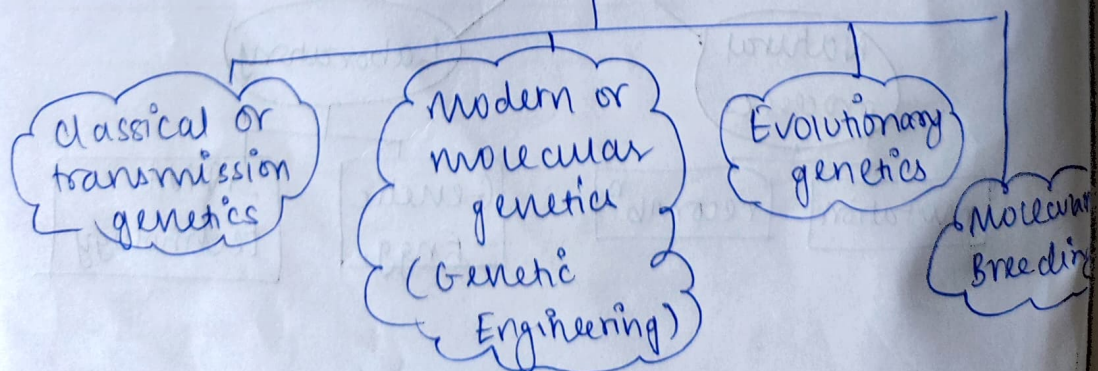 Classical or
transmission
genetics
Modern or
molecular
genetics
(Genetic
Engineering)
Evolutionary
genetics
Molecular
Breeding